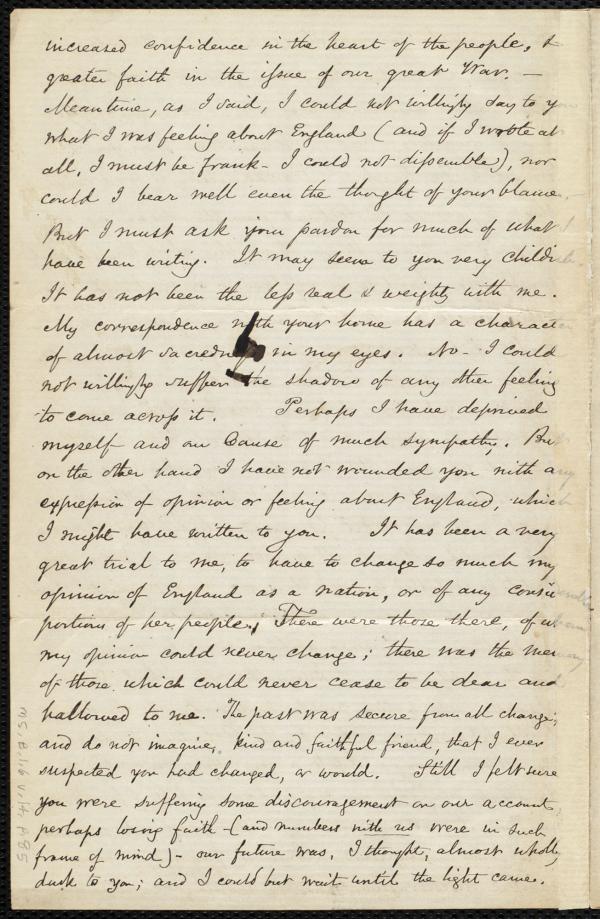 increased confidence in the heart of the people, &
greater faith in the issue of our great War. —
Meantime, as I said, I could not willingly say to y
what I was feeling about England (and if I wrote at
all, I must be frank - I could not dissemble), nor
could I bear well even the thought of your blame.
But I must ask your pardon for much of what I
have been writing. It may seem to you very childi
It has not been the less real & weighty with me.
My correspondence with your home has a charact
of almost sacredness in my eyes. No - I could
not willingly suffer the shadow of any other feeling
to come across it. Perhaps I have deprived
myself and our Cause of much sympathy. But
on the other hand I have not wounded you with any
expression of opinion or feeling about England, which
I might have written to you. It has been a very
great trial to me, to have to change so much my
opinion of England as a nation, or of any consi
portion of her people; There were those there, of wh
my opinion could never change; there was the mem
of those which could never cease to be dear and
hallowed to me. The past was secure from all change;
and do not imagine, kind and faithful friend, that I ever
suspected you had changed, or would. Still I felt sure
you were suffering some discouragement on our account,
perhaps losing faith - (and numbers with us were in such
frame of mind) - our future was, I thought, almost wholly
dark to you; and I could but wait until the light came.
MS. A.1.6 v.14, p.85